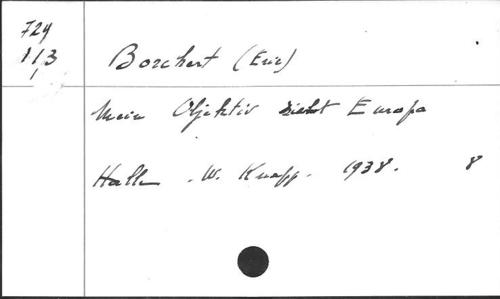 724
113
Borchert (Eric)
Mein Objektiv sieht Europa
Halle . W. Knapp. 1938. 8